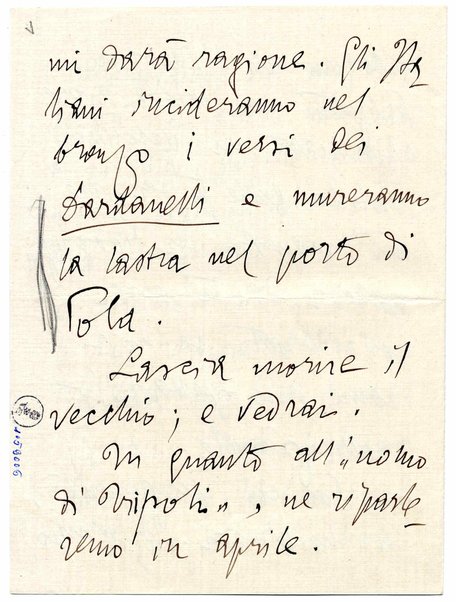 mi darà ragione. Gli Ita
liani incideranno nel
bronzo i versi dei
Dardanelli e mureranno
la lastra nel porto di
Pola.
Lascia morire il
vecchio; e vedrai.
In quanto all'"uomo
di Tripoli", ne riparle
remo in aprile.